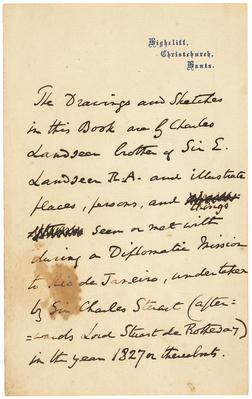 Highcliff,
Christchurch,
Hants.
The Drawings and Sketches
in this Book are by Charles
Landseer brother of Sir E.
Landseer R.A. and illustrate
places, persons, and
things
seen or met with
during a Diplomatic Mission
to Rio de Janeiro, undertaken
by Sir Charles Stuart (after-
=wards Lord Stuart de Rothesay)
in the year 1827 or thereabouts.